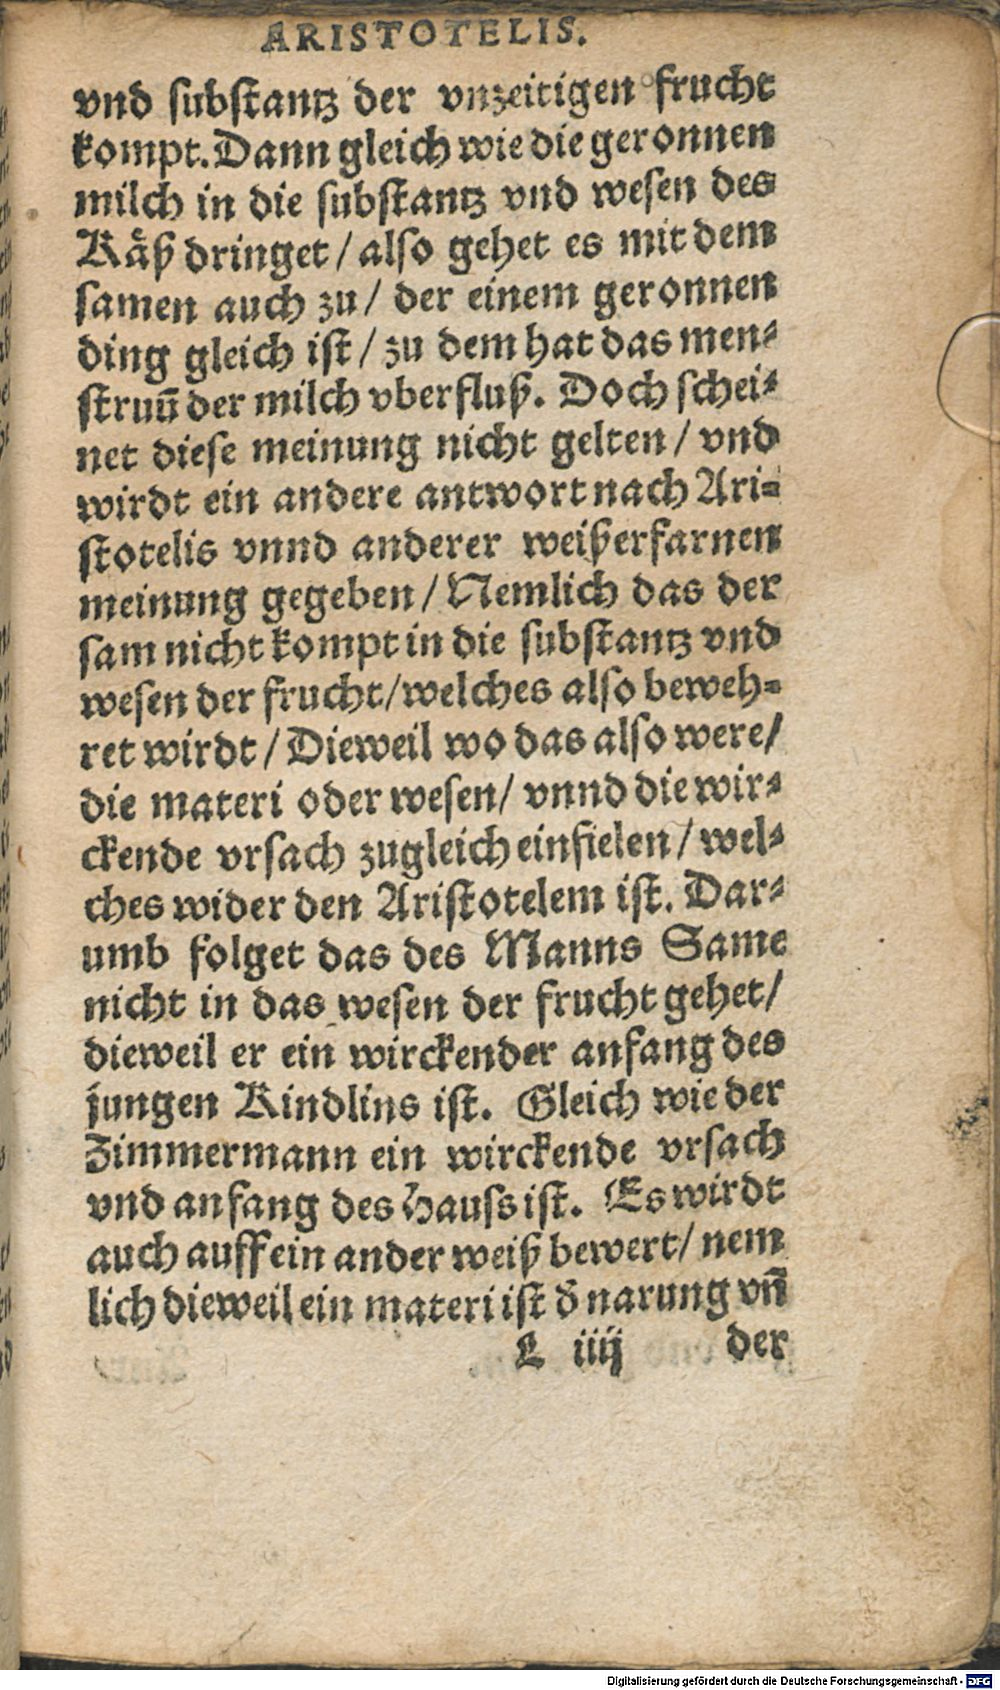 ARISTOTELIS.
vnd substantz der vnzeitigen frucht
kompt. Dann gleich wie die geronnen
milch in die substantz vnd wesen des
Kåß dringet / also gehet es mit dem
samen auch zu / der einem geronnen
ding gleich ist / zu dem hat das men⸗
struū der milch vberfluß. Doch schei⸗
net diese meinung nicht gelten / vnd
wirdt ein andere antwort nach Ari⸗
stotelis vnnd anderer weißerfarnen
meinung gegeben / Nemlich das der
sam nicht kompt in die substantz vnd
wesen der frucht / welches also beweh⸗
ret wirdt / Dieweil wo das also were /
die materi oder wesen / vnnd die wir⸗
ckende vrsach zugleich einfielen / wel⸗
ches wider den Aristotelem ist. Dar⸗
umb folget das des Manns Same
nicht in das wesen der frucht gehet /
dieweil er ein wirckender anfang des
jungen Kindlins ist. Gleich wie der
Zimmermann ein wirckende vrsach
vnd anfang des Hauss ist. Es wirdt
auch auff ein ander weiß bewert / nem
lich dieweil ein materi ist đ narung vñ
L iiij der
Digitalisierung gefördert durch die Deutsche Forschungsgemeinschaft - DFG